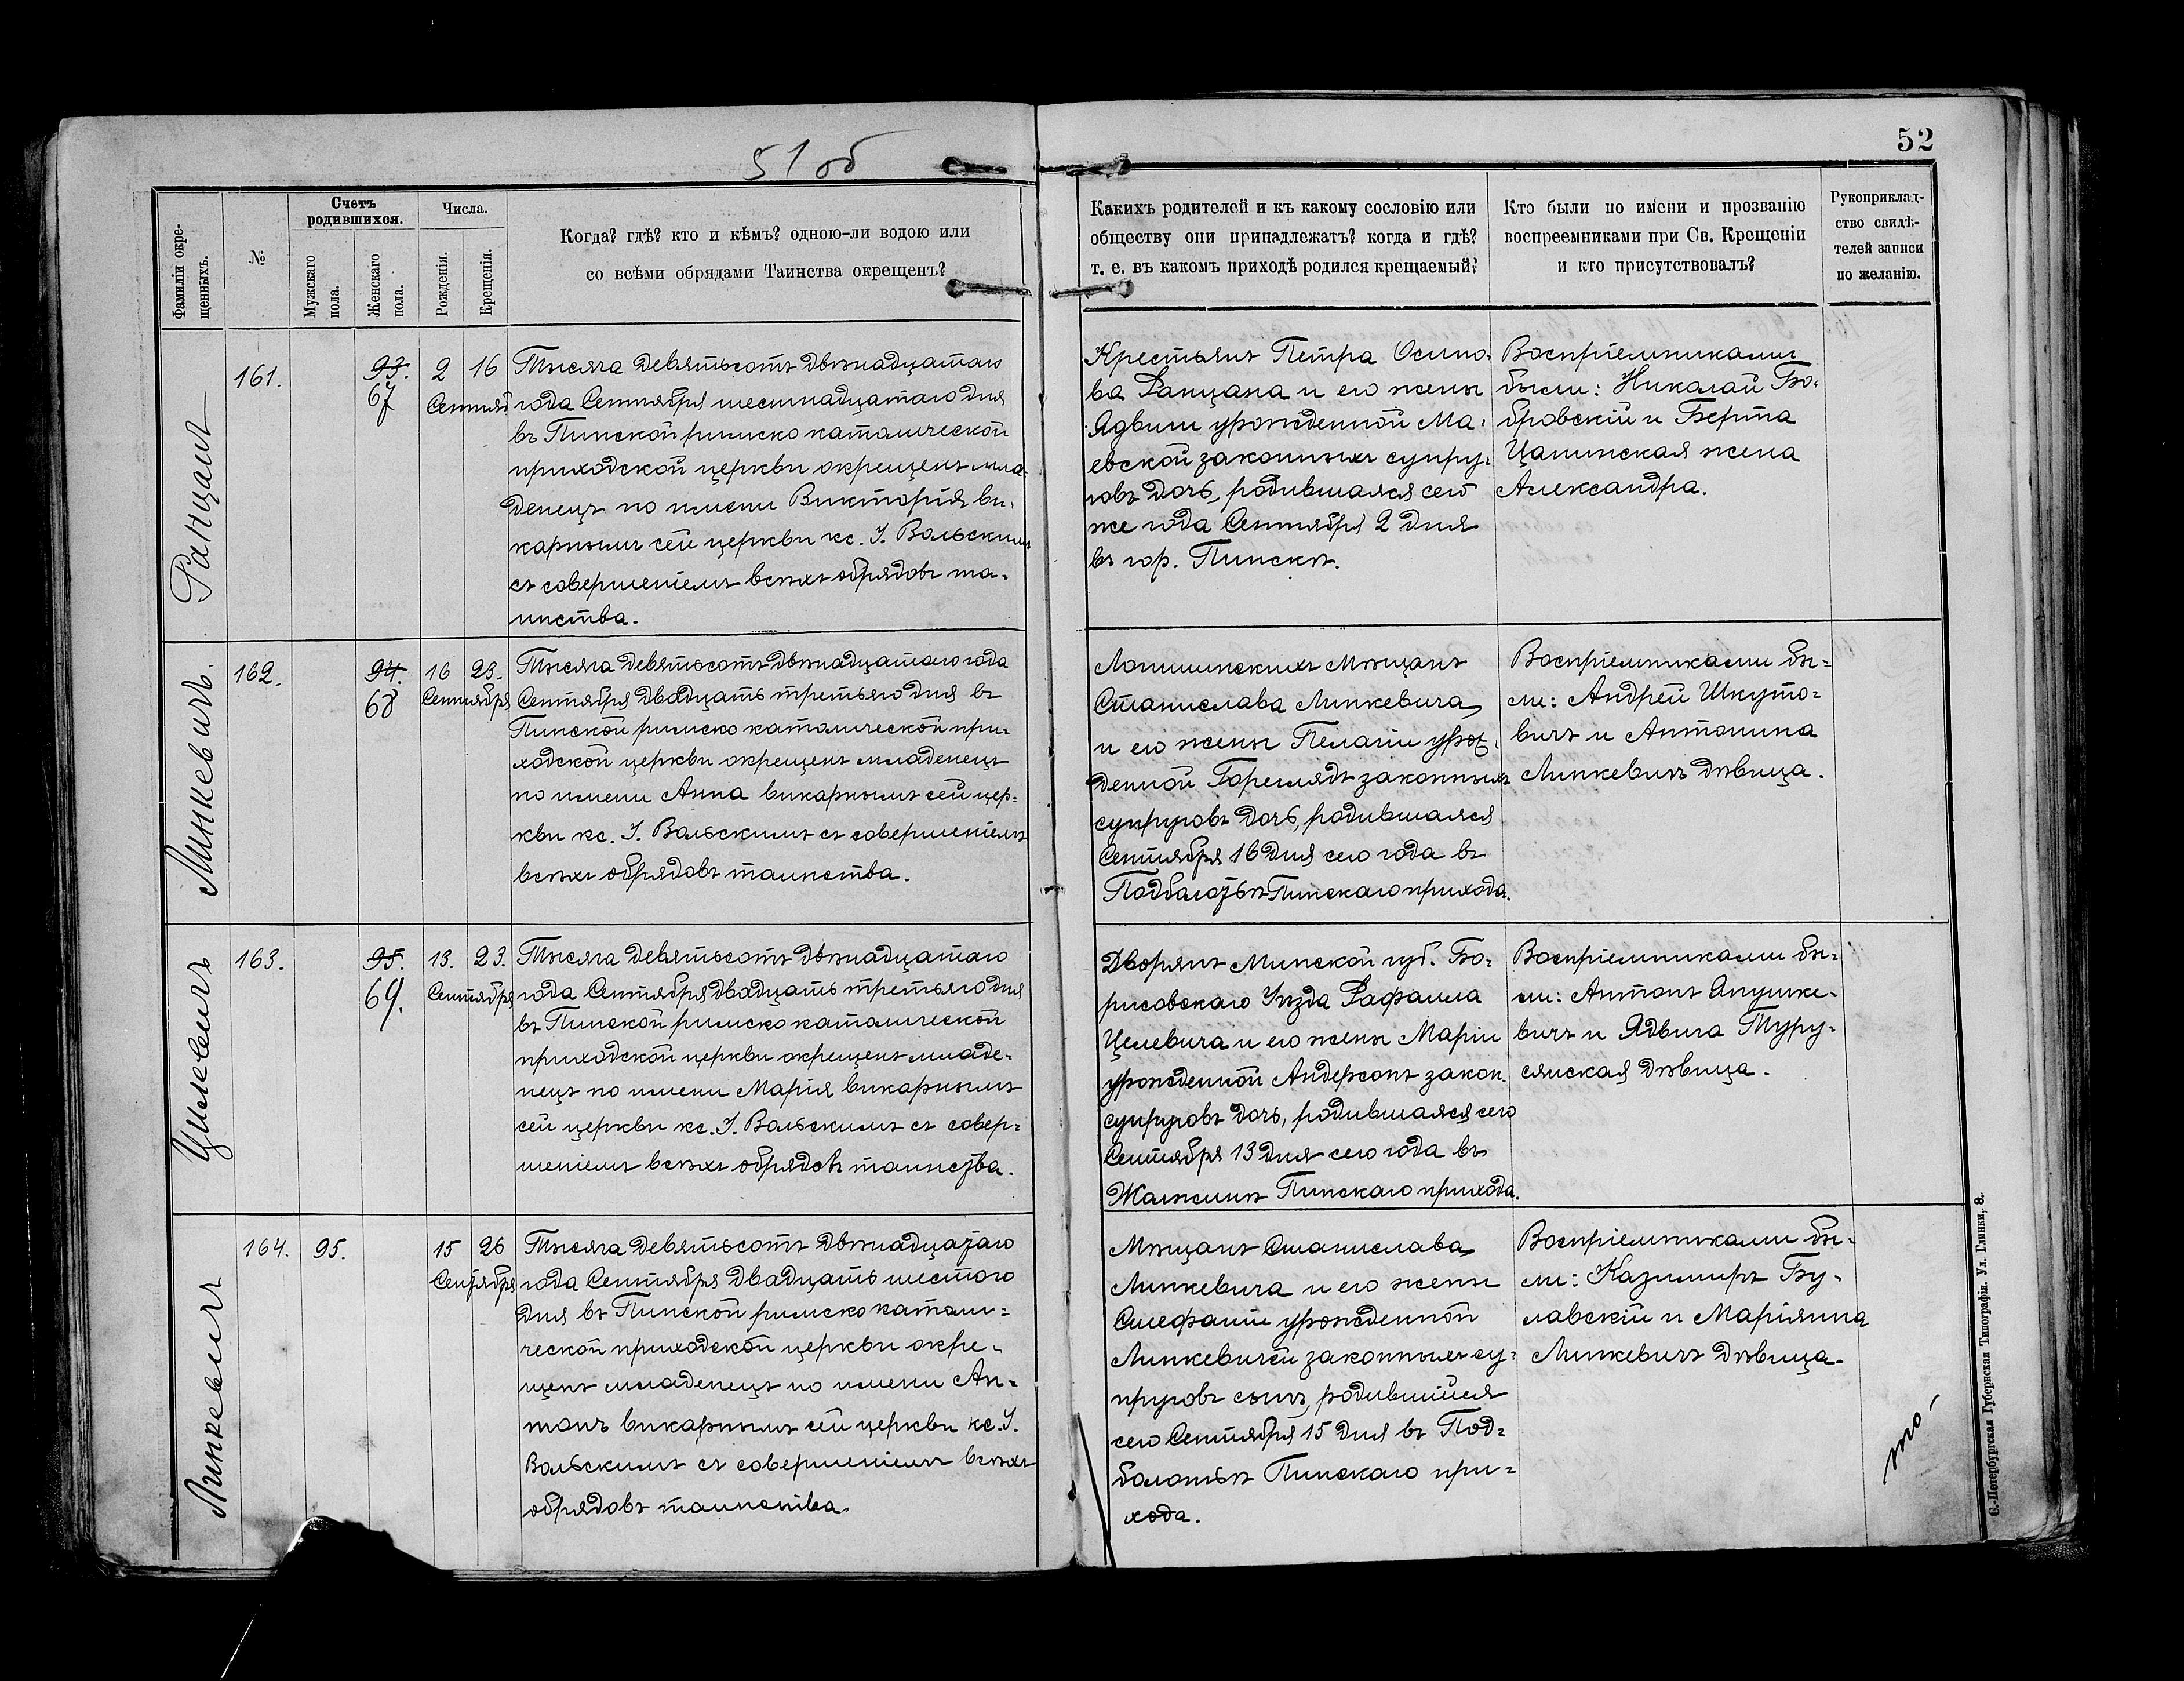 51 об
52
Фамиліи окре-
щенныхъ.
№
Счетъ
родившихся.
Мужскаго
пола.
Женскаго
пола.
Числа.
Рожденія.
Крещенія.
Когда? гдѣ? кто и кѣмъ? одною-ли водою или
со всѣми обрядами Таинства окрещенъ?
Какихъ родителей и къ какому сословію или
обществу они принадлежатъ? когда и гдѣ?
т. е. въ какомъ приходѣ родился крещаемый?
Кто были по имени и прозванію
воспреемниками при Св. Крещеніи
и кто присутствовалъ?
Рукоприклад-
ство свидѣ-
телей записи
по желанію.
Ранцанъ
161.
93.
67
2 16
Сентяб
Тысяча девятьсотъ двѣнадцатаго
года Сентября шестнадцатаго дня
въ Пинской римско католической
приходской церкви окрещенъ мла
денецъ по имени Викторія ви-
карнымъ сей церкви кс. І. Вольскимъ
съ совершеніемъ всѣхъ обрядовъ та-
инства.
Крестьянъ Петра Осипо-
ва Ранцана и его жены
Ядвиги урожденной Ма-
евской законныхъ супру-
говъ дочь, родившаяся сего
же года Сентября 2 дня
въ гор. Пинскѣ.
Воспріемниками
были: Николай Бо-
бровскій и Берта
Цапинская жена
Александра.
Линкевичъ.
162.
94.
68
16 23.
Сентября
Тысяча девятьсотъ двѣнадцатаго года
Сентября двадцать третьяго дня въ
Пинской римско католической при-
ходской церкви окрещенъ младенецъ
по имени Анна викарнымъ сей цер-
кви кс. І. Вольскимъ съ совершеніемъ
всѣхъ обрядовъ таинства.
Логишинскихъ мѣщанъ
Станислава Линкевича
и его жены Пелагіи урож-
денной Горегляд законныхъ
супруговъ дочь, родившаяся
Сентября 16 дня сего года въ
Подболотьѣ Пинскаго прихода.
Воспріемниками бы-
ли: Андрей Шкуто-
вичъ и Антонина
Линкевичъ дѣвица.
Цилевичъ
163.
95.
69.
13. 23.
Сентября
Тысяча девятьсотъ двѣнадцатаго
года Сентября двадцать третьяго дня
въ Пинской римско католической
приходской церкви окрещенъ младе-
нецъ по имени Марія викарнымъ
сей церкви кс. І. Вольскимъ съ совер-
шеніемъ всѣхъ обрядовъ таинства.
Дворянъ Минской губ. Бо-
рисовскаго Уѣзда Рафаила
Целевича и его жены Маріи
урожденной Андерсонъ закон.
супруговъ дочь, родившаяся сего
Сентября 13 дня сего года въ
Пинскаго прихода.
Воспріемниками бы-
ли: Антонъ Янушке-
вичъ и Ядвига Туру-
сянская дѣвица.
Линкевичъ
164.
95.
15 26
Сентября
Тысяча девятьсотъ двѣнадцатаго
года Сентября двадцать шестого
дня въ Пинской римско католи-
ческой приходской церкви окре-
щенъ младенецъ по имени Ан-
тонъ викарнымъ сей церкви кс. І.
Вольскимъ съ совершеніемъ всѣхъ
обрядовъ таинства.
Мѣщанъ Станислава
Линкевича и его жены
Стефаніи урожденной
Линкевичей законныхъ су-
пруговъ сынъ, родившійся
сего Сентября 15 дня въ Под-
болотьѣ Пинскаго при-
хода.
Воспріемниками бы-
ли: Казимиръ Бу-
лавскій и Маріянна
Линкевичъ дѣвица.
то-
С.-Петербургская Губернская Типографія. Ул. Глинки, 8.